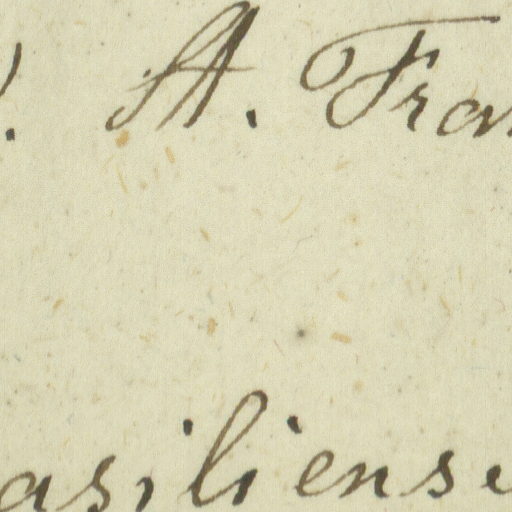 . A. Fran
asiliense